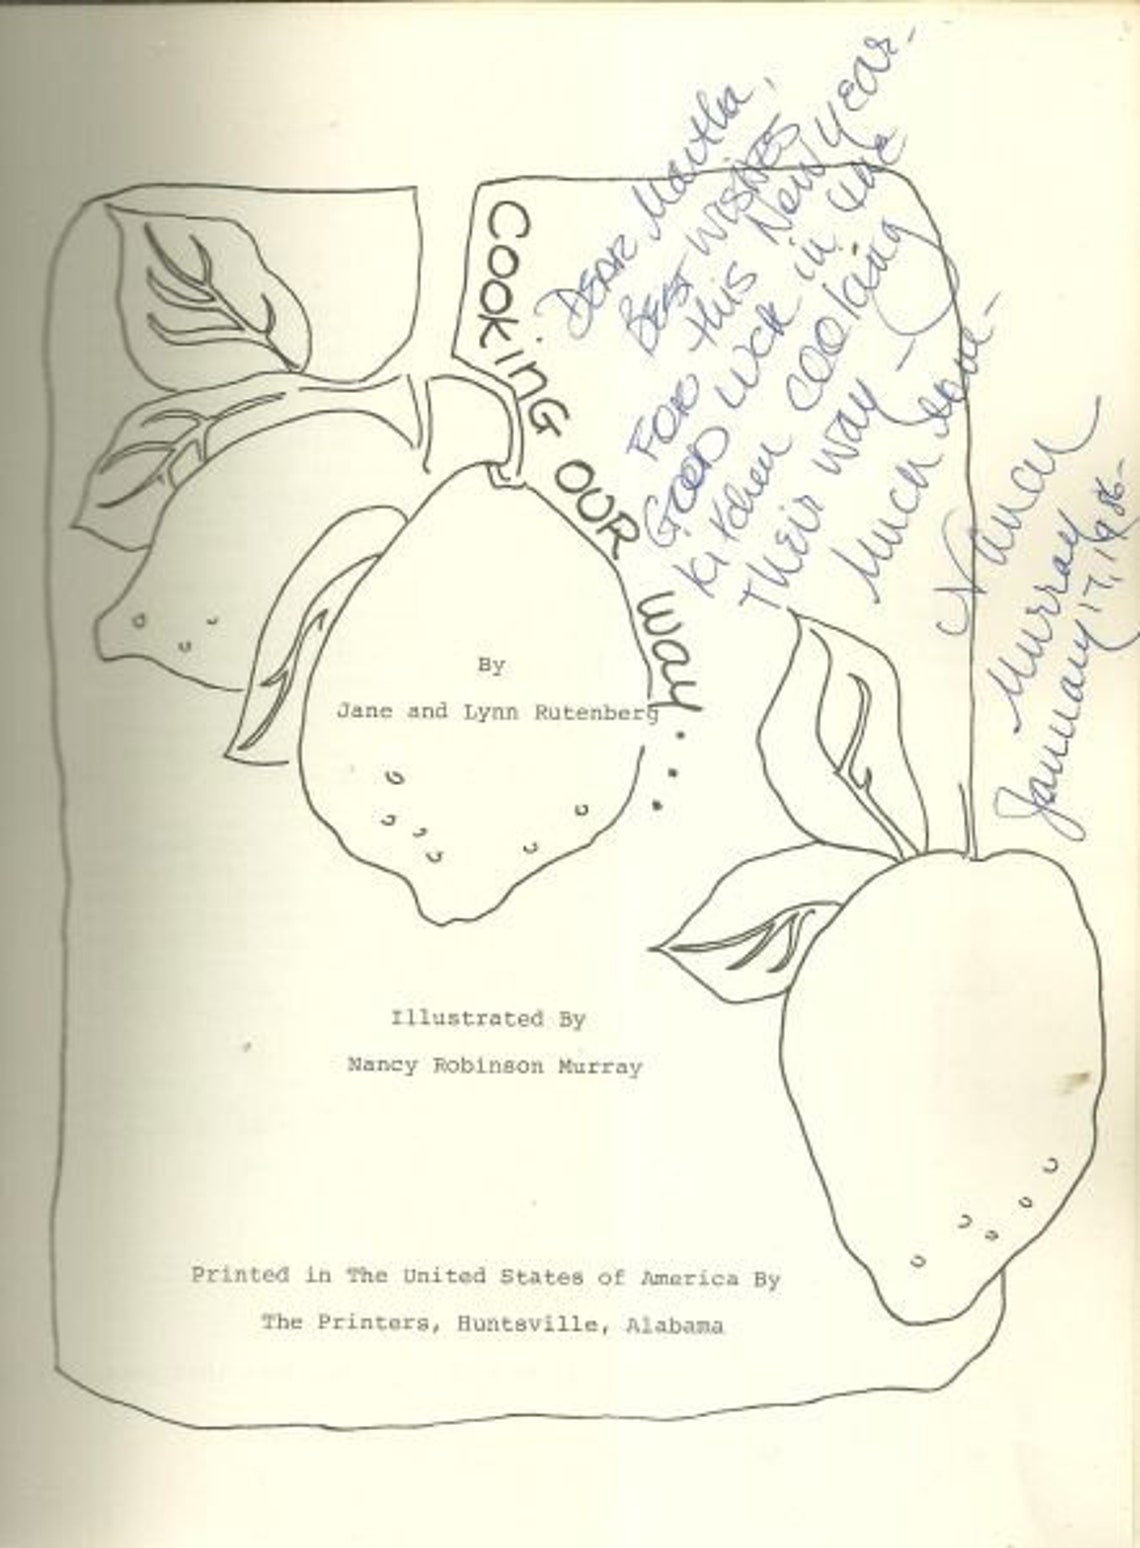 Dear Martha,
Best Wishes
For this New Year-
Good Luck in the
Kitchen cooking
Their way -
Much love -
Nancy
Murray
January 17, 1986-
COOKiNG OUR way...
By
Jane and Lynn Rutenberg
Illustrated By
Nancy Robinson Murray
Printed in The United States of America By
The Printers, Huntsville, Alabama